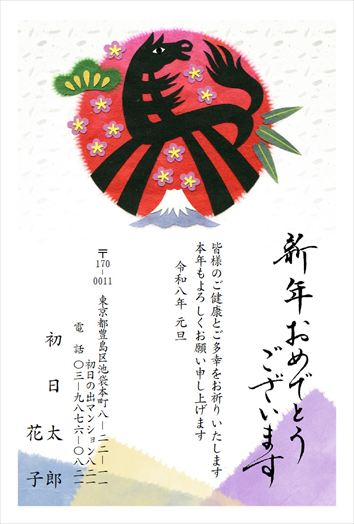 新年おめでとう
ございます
皆様のご健康とご多幸をお祈りいたします
本年もよろしくお願い申し上げます
令和八年 元旦
〒170-0011 東京都豊島区池袋本町八-二二-一一
初日の出マンション八二一
電話 〇三-九八七六-〇八二一
初日 太郎
花子